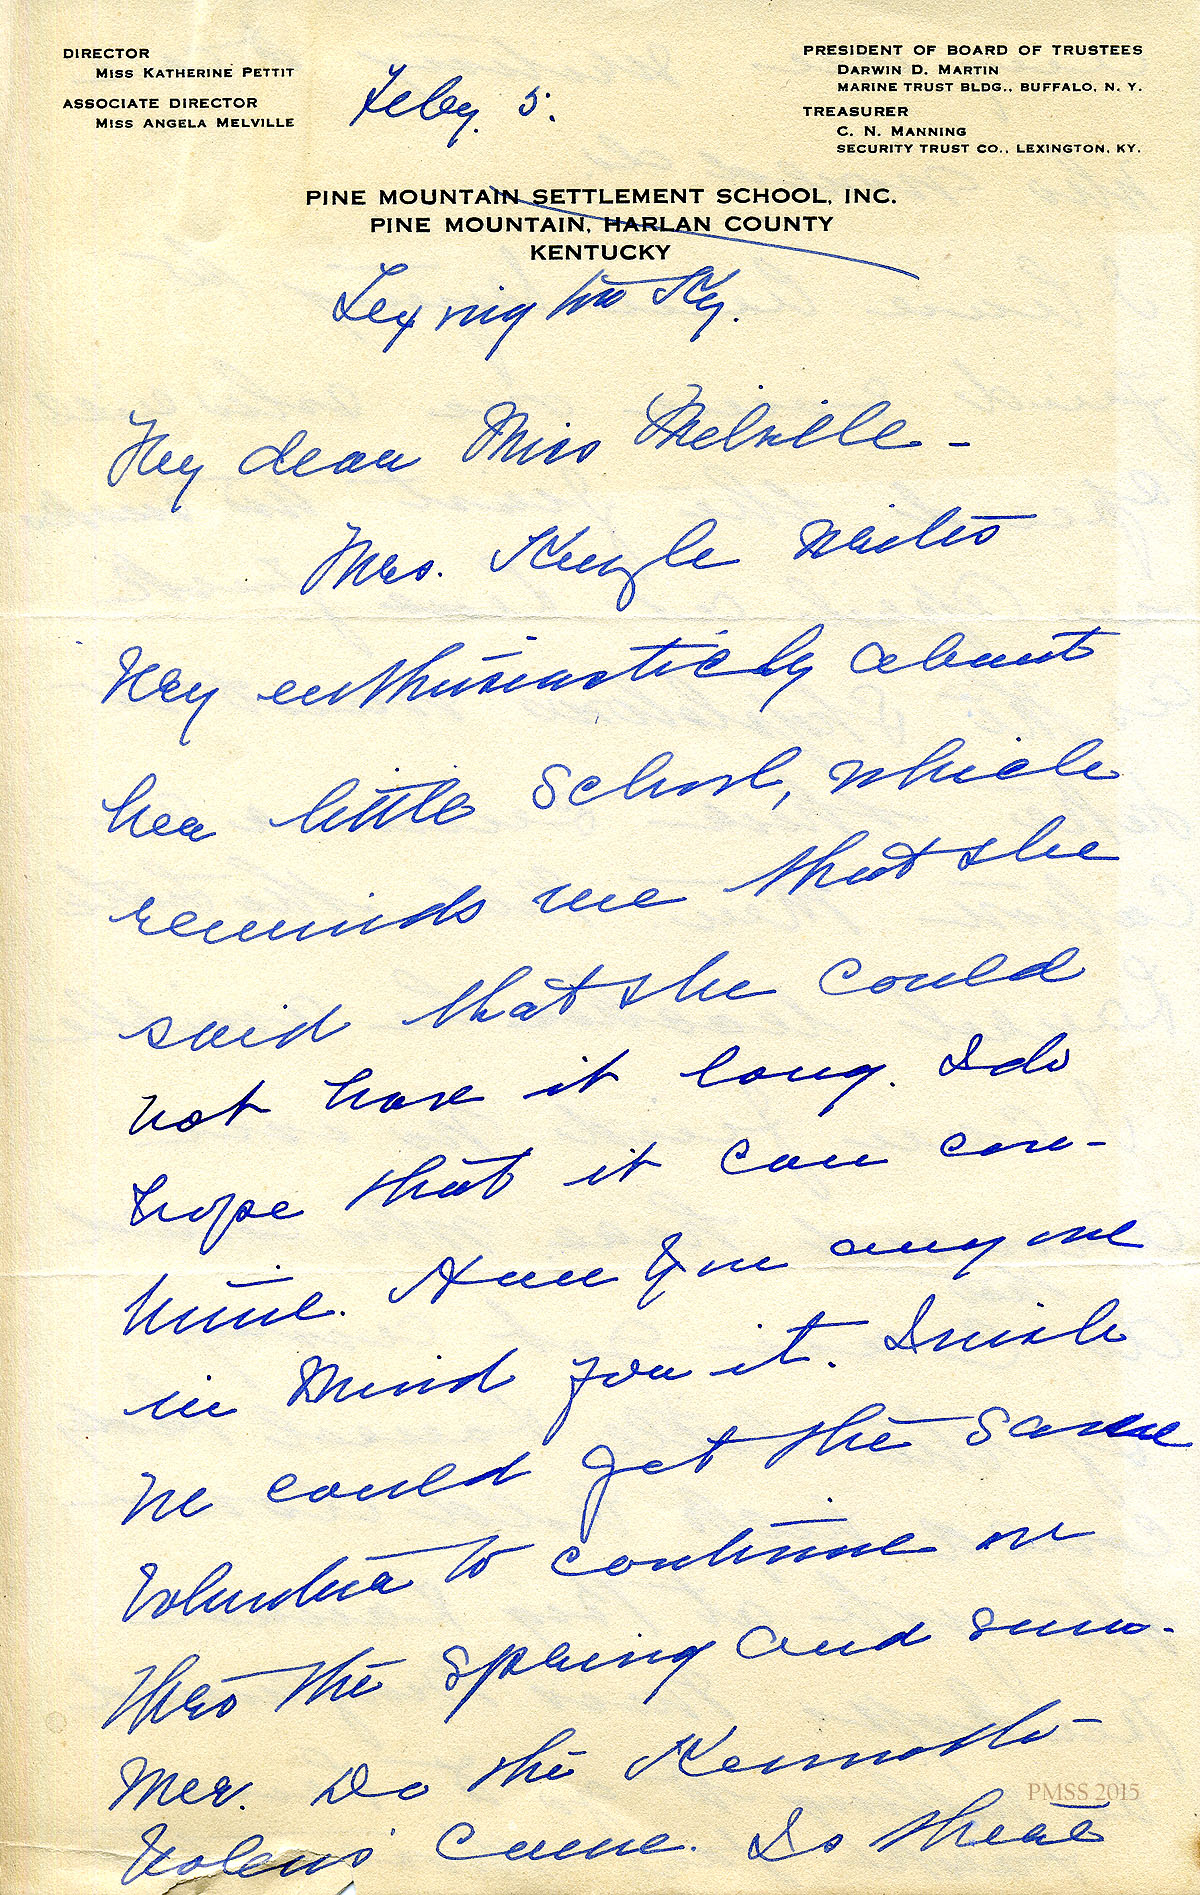 DIRECTOR
MISS KATHERINE PETTIT
ASSOCIATE DIRECTOR
MISS ANGELA MELVILLE
Feby. 5.
PRESIDENT OF BOARD OF TRUSTEES
DARWIN D. MARTIN
MARINE TRUST BLDG., BUFFALO, N. Y.
TREASURER
C. N. MANNING
SECURITY TRUST CO., LEXINGTON, KY.
PINE MOUNTAIN SETTLEMENT SCHOOL, INC.
PINE MOUNTAIN, HARLAN COUNTY
KENTUCKY
Lexington Ky.
My dear Miss Melville -
Mrs. writes
very enthusiasticly about
her little school, which
reminds me that she
said that she could
not have it long. I do
hope that it can con-
tinue. Have you anyone
in mind for it. I wish
we could get the same
volunteer to continue on
thro the spring and sum-
mer. Do the
come. Is there
PMSS 2015